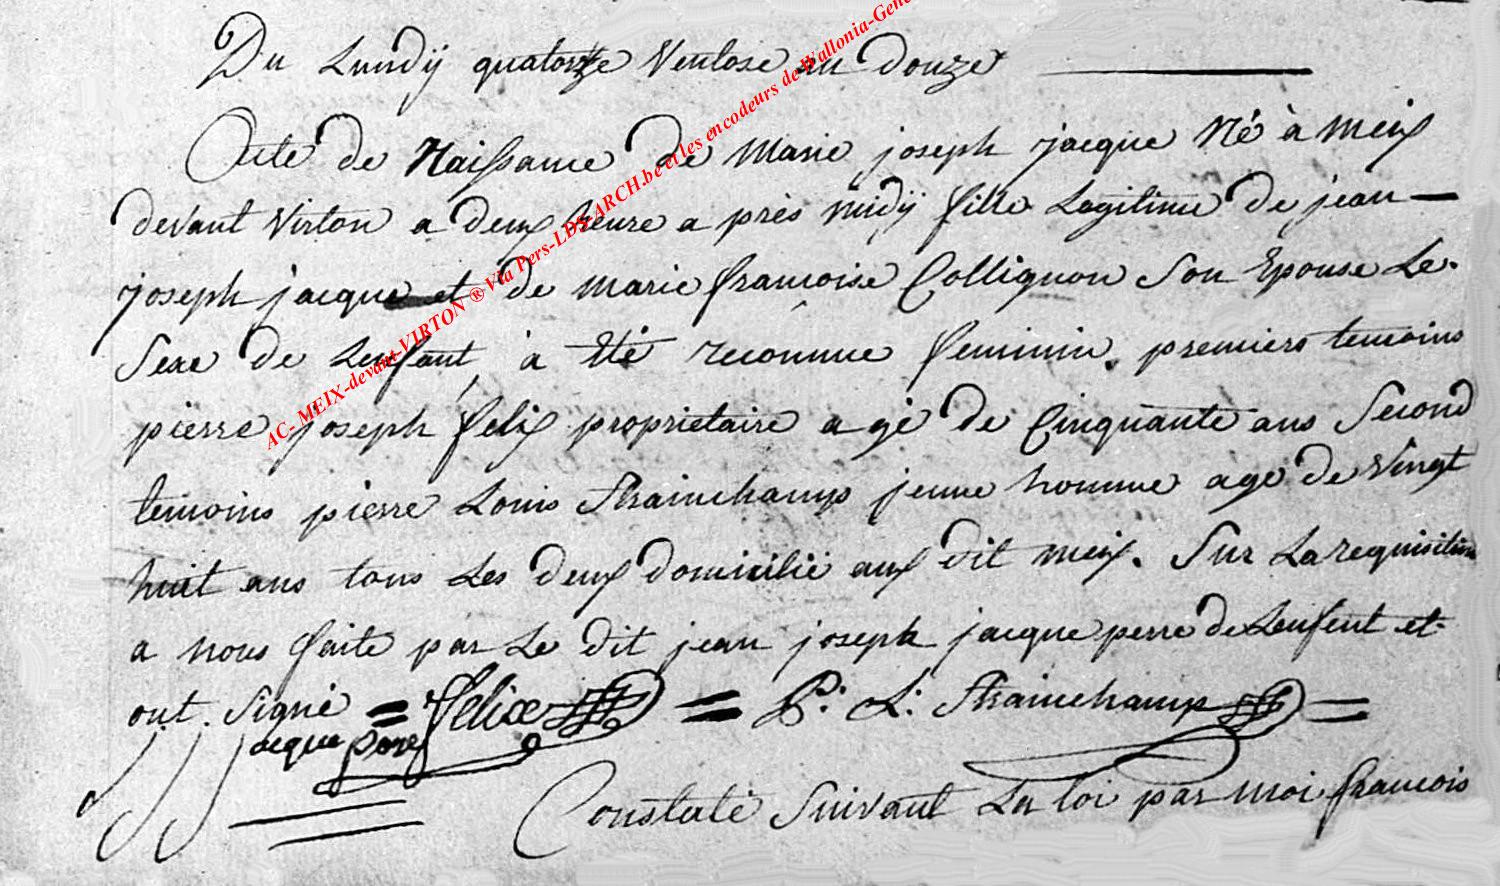 Du Lundÿ quatorze Ventose an douze
Acte de Naissance de Marie joseph jacque Né à Meix
devant Virton a deux heure a près midÿ fille Legitime de jean
joseph jacque et de marie francoise Collignon Son Epouse Le
Sexe de Lenfant à Eté reconnue feminin. premiers temoins
pierre joseph felix proprietaire agé de Cinquante ans Second
temoins pierre Louis Strainchamp jeune homme age de Vingt
huit ans tous Les deux domicilié aux dit Meix. Sur La requisition
a nous faite par Le dit jean joseph jacque perre de Lenfent et
ont Signé = felix = P: L: Strainchamp =
Jacque pere
Constaté Suivant La loi par moi francois
AC- MEIX-devant-VIRTON ® Via Pers-LDS-ARCH.be et les encodeurs de Wallonia-Gene